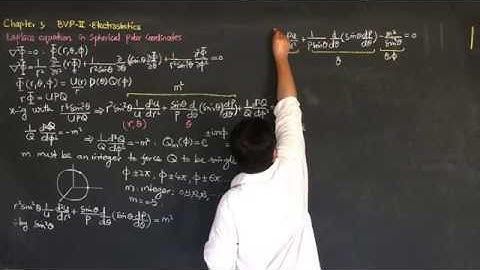 Chapter 3 BVP-II Electrostatics
Laplace equation in Spherical Polar Coordinates
∇²Φ=0 Φ(r,θ,φ)
∇²Φ = 1/r ∂²/∂r² (rΦ) + 1/(r² sinθ) ∂/∂θ (sinθ ∂Φ/∂θ) + 1/(r² sin²θ) ∂²Φ/∂φ² = 0
Φ(r,θ,φ) = U(r)/r P(θ) Q(φ)
rΦ = UPQ m²
x-ig with r² sin²θ/UPQ ⇒ r² sin²θ 1/U d²U/dr² + sinθ/P d/dθ (sinθ dP/dθ) + 1/Q d²Q/dφ²
(r,θ) θ
1/Q d²Q/dφ² = -m² ⇒ 1/Q d²Q/dφ² = -m² : Qₘ(φ) = e^±imφ
m must be an integer to force Q to be single
φ±2π, φ±4π, φ±6π
m: integer: 0,±1,±2,±3,
r² sin²θ 1/U d²U/dr² + sinθ/P d/dθ (sinθ dP/dθ) = m²
÷ by sin²θ
+ 1/(P sinθ) d/dθ (sinθ dP/dθ) - m²/sin²θ = 0
θ θ,φ